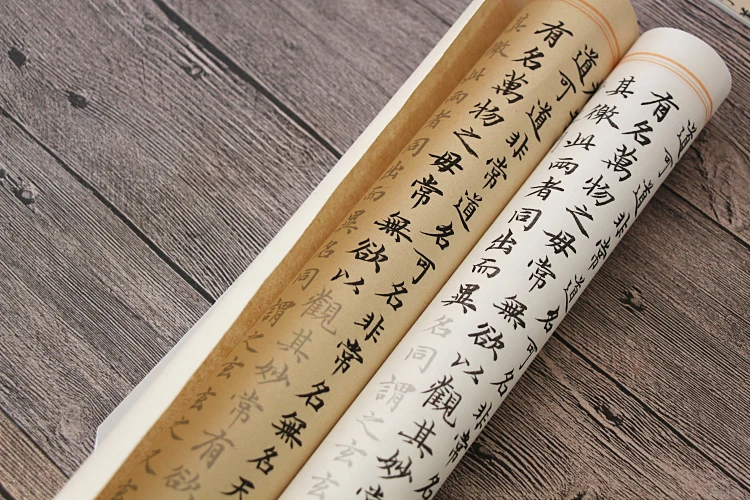 道可道非常道名可名非常名無名天
有名萬物之毋常無欲以觀其妙常有欲
其徼此兩者同出而異名同謂之玄玄之又玄
道可道非常道名可名非常
有名萬物之毋常無欲以觀其妙常
其徼此兩者同出而異名同謂之玄玄